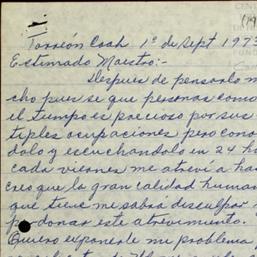 Torreón Coah 1º de Sept 1973
Estimado Maestro:-
Despues de pensarlo m
cho pues se que personas como
el tiempo es precioso por sus
tiples ocupaciones pero cono
dolo y escuchandolo en 24 h
cada viernes me atreví a ha
creo que la gran calidad human
que tiene me sabrá disculpar
perdonar este atrevimiento.
Quiero exponerle mi problema